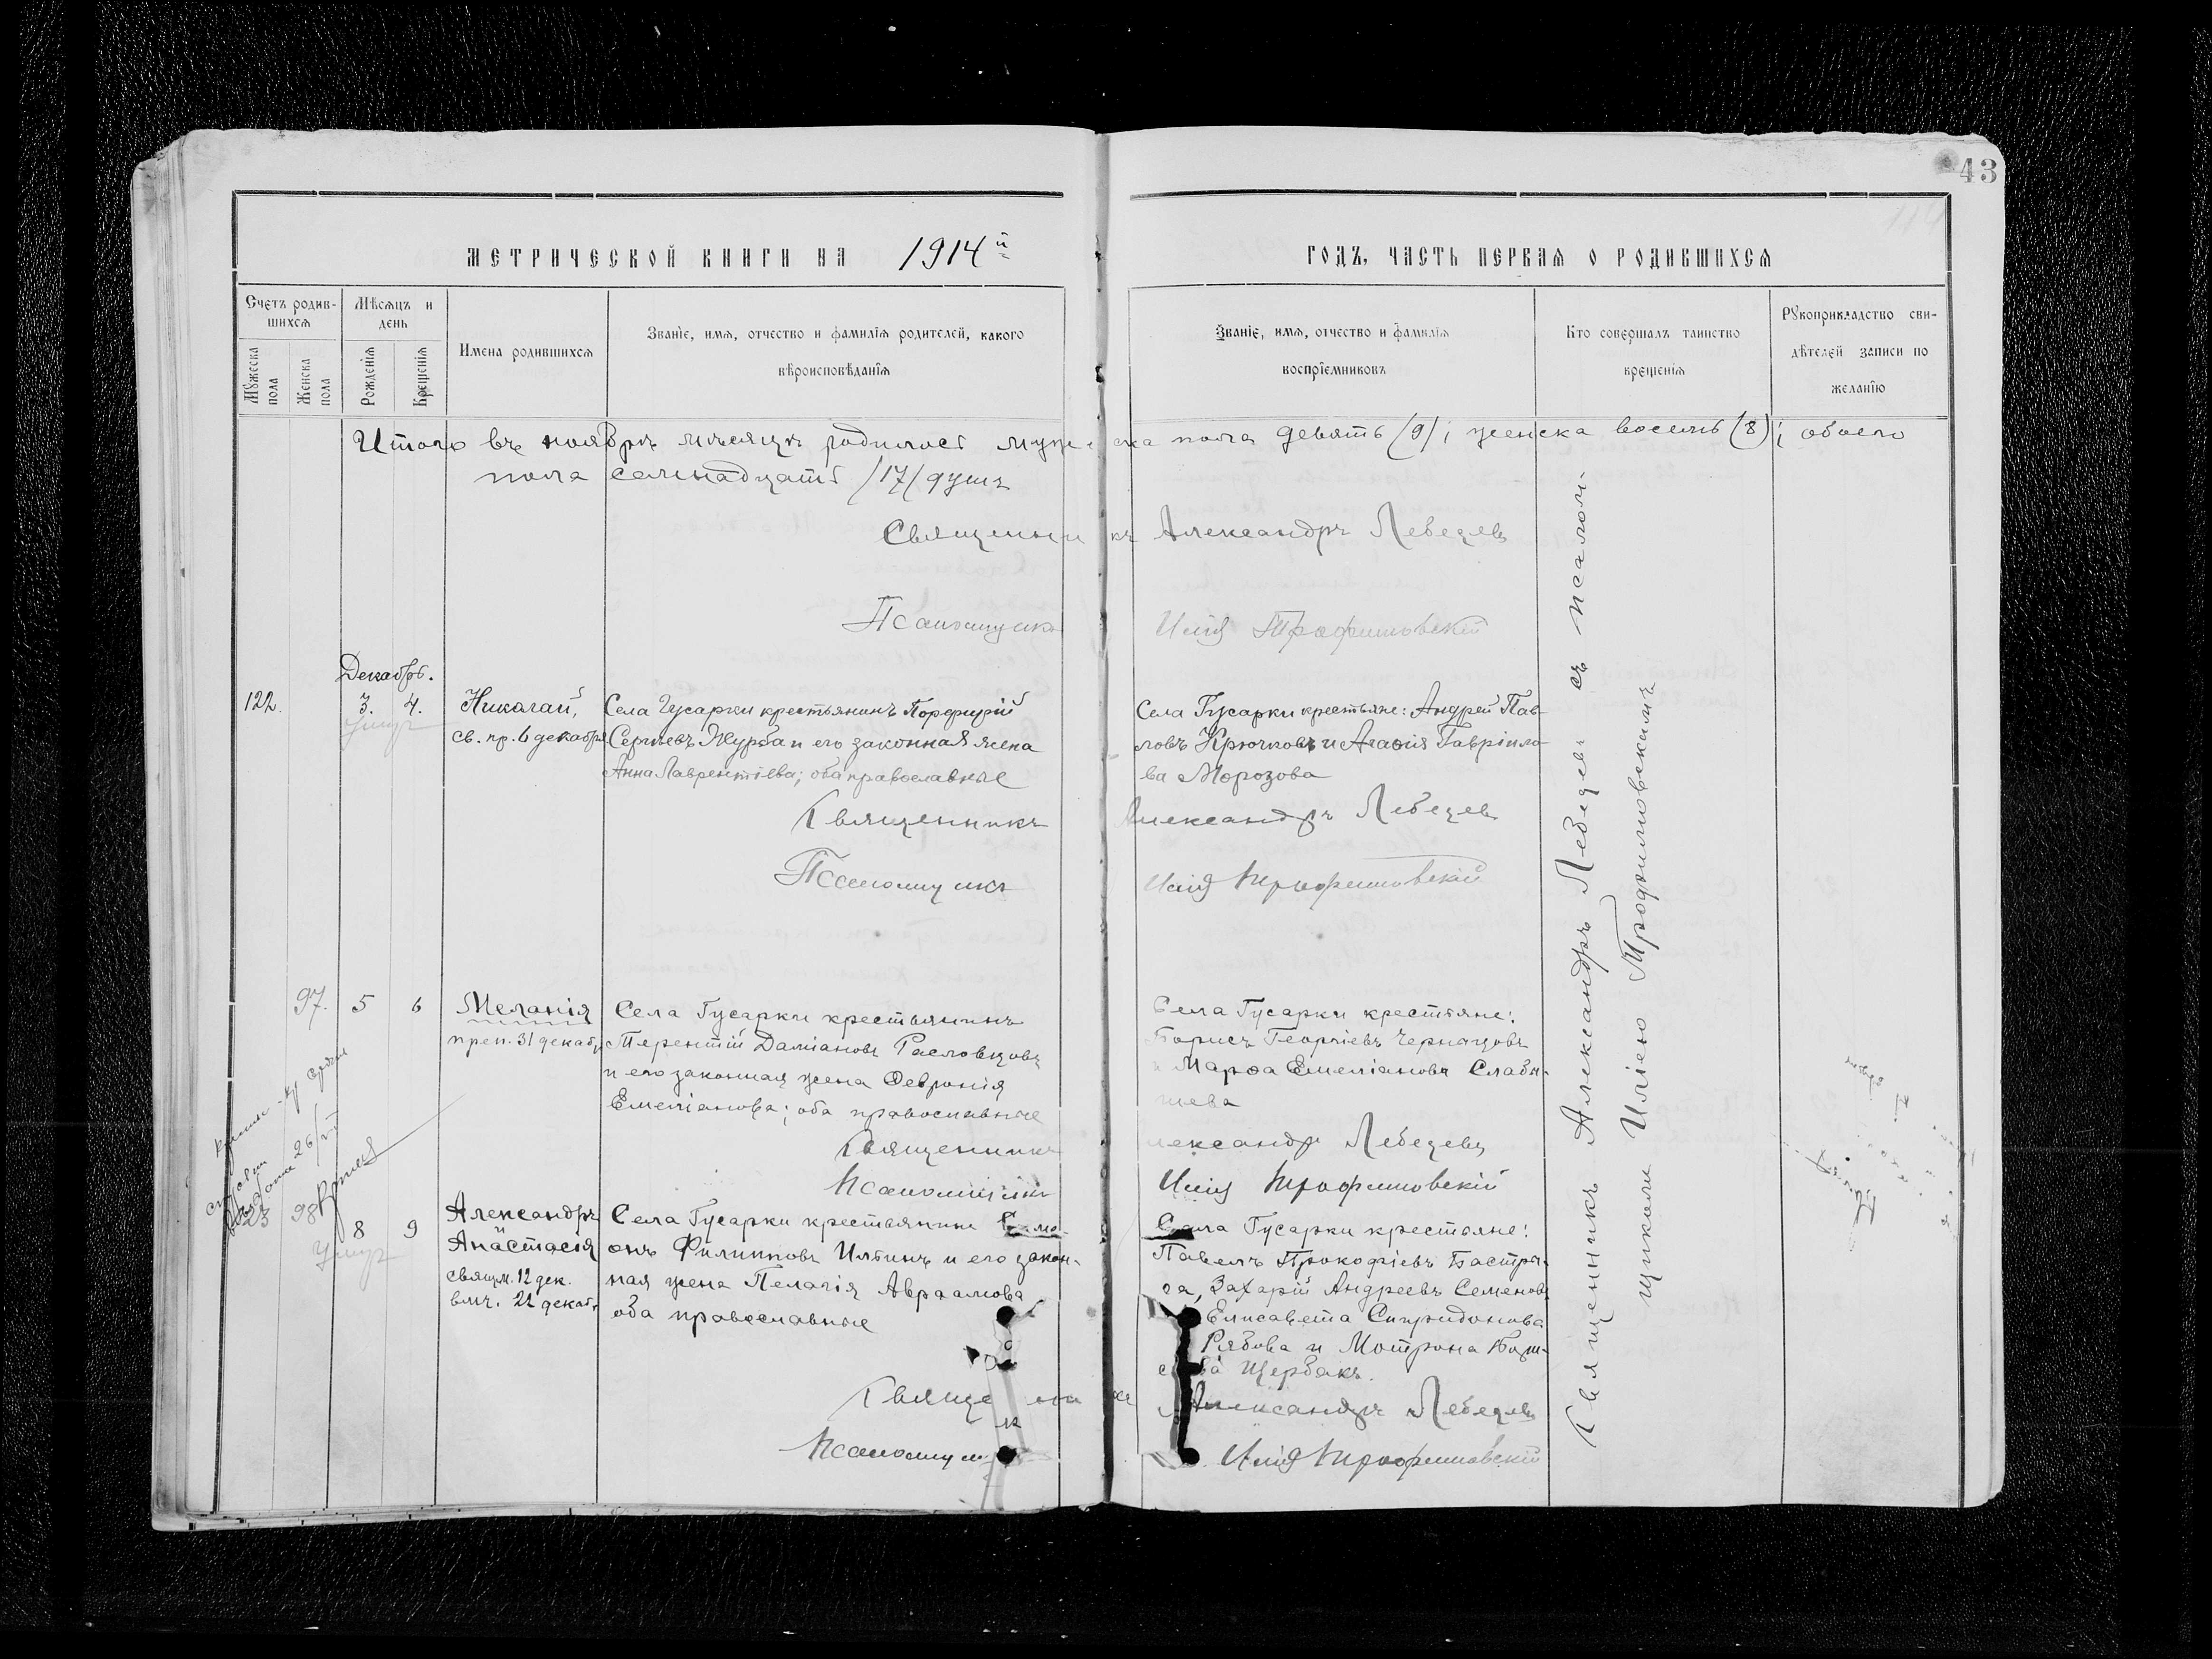 43
МЕТРИЧЕСКОЙ КНИГИ НА 1914й ГОДЪ, ЧАСТЬ ПЕРВАЯ О РОДИВШИХСЯ
Счетъ родив-
шихся
Мужеска пола
Женска пола
Мѣсяцъ и
день
Рожденія
Крещенія
Имена родившихся
Званіе, имя, отчество и фамилія родителей, какого
вѣроисповѣданія
Званіе, имя, отчество и фамилія
воспріемниковъ
Кто совершалъ таинство
крещенія
Рукоприкладство сви-
дѣтелей записи по
желанію
Итого въ ноябрѣ мѣсяцѣ родилось мужеска пола девять (9); женска восемь (8); обоего
пола семнадцать /17/ душъ
Священникъ Александръ Лебедевъ
Псаломщикъ Илія Трофимовскій
Декабрь.
122. 3. 4.
Умеръ
Николай,
св. пр. 6 декабря
Села Гусарки крестьянинъ Порфирій
Сергіевъ Журба и его законная жена
Анна Лаврентіева; оба православные
Села Гусарки крестьяне: Андрей Пав-
ловъ Крючковъ и Агафія Гавріило-
ва Морозова
Священникъ Александръ Лебедев
Псаломщикъ Илія Трофимовскій
97. 5 6
Меланія
преп. 31 декаб.
Села Гусарки крестьянинъ
Терентій Даміановъ
и его законная жена Февронія
Емеліанова; оба православные
Села Гусарки крестьяне:
Борисъ Георгіевъ
и Марѳа Емеліанова
Священникъ Александр Лебедевъ
Псаломщикъ Илія Трофимовскій
26/VI
123 98 8 9
Умер
Александръ
и
Анастасія
свящм. 12 дек.
вмч. 22 декаб.
Села Гусарки крестьянинъ Симе-
онъ Филипповъ Ильинъ и его закон-
ная жена Пелагія Авраамова
оба православные
Села Гусарки крестьяне:
Павелъ Прокофіевъ Бастры-
га, Захарій Андреевъ Семеновъ
Елисавета Спиридонова
Рябова и Мотрона
Щербакъ.
Священникъ Александръ Лебедевъ
Псаломщикъ Илія Трофимовскій
Священникъ Александръ Лебедевъ съ псалом-
щикомъ Иліею Трофимовскимъ